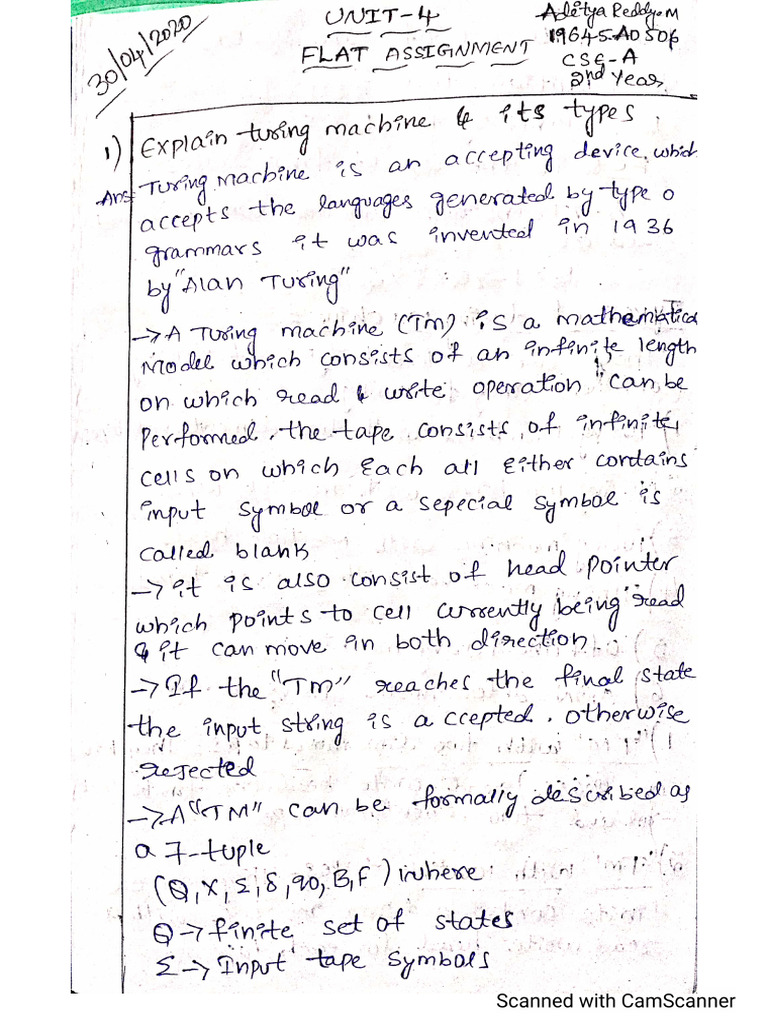 30/04/2020
UNIT-4
FLAT ASSIGNMENT
Aditya Reddy.M
19645A0506
CSE-A
2nd Year
1) Explain turing machine & its types
Ans: Turing Machine is an accepting device, which
accepts the languages generated by type 0
grammars it was invented in 1936
by "Alan Turing"
→ A Turing machine (TM) is a mathematical
Model which consists of an infinite length
on which read & write operation can be
Performed. the tape consists of infinite
cells on which Each all Either contains
input symbol or a sepecial symbol is
called blank
→ it is also consist of head pointer
which points to cell currently being read
& it can move in both direction
→ If the "TM" reaches the final state
the input string is accepted. otherwise
rejected
→ A "TM" can be formally described as
a 7-tuple
(Q,X,Σ,δ,q0,B,F) where
Q → finite set of states
Σ → Input tape symbols
Scanned with CamScanner